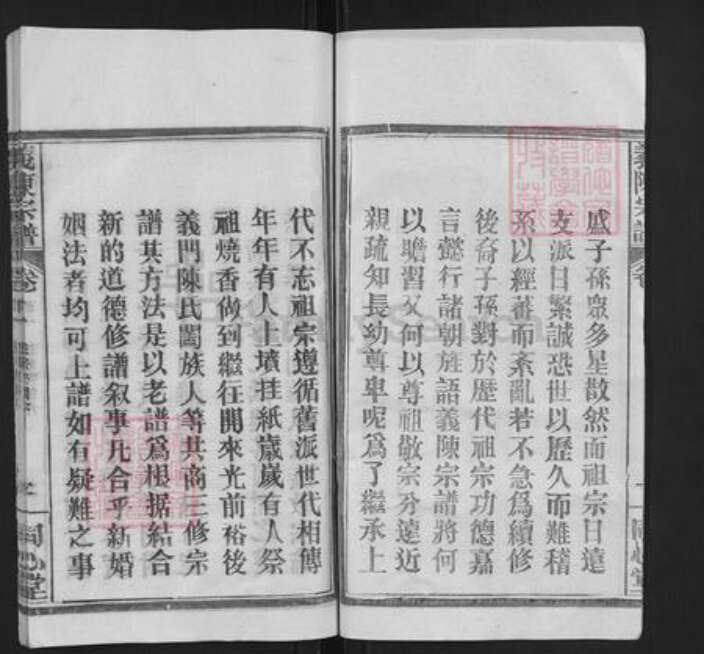 義陳宗譜
戚子孫眾多星散然而祖宗日遠
支派日繁誠恐世以歷久而難稽
系以經蕃而紊亂若不急爲續修
後裔子孫對於歷代祖宗功德嘉
言懿行諸朝旌語義陳宗譜將何
以瞻習又何以尊祖敬宗分遠近
親疏知長幼尊卑呢爲了繼承上
代不忘祖宗遵循舊派世代相傳
年年有人上墳挂紙歲歲有人祭
祖燒香做到繼往開來光前裕後
義門陳氏闔族人等共商三修宗
譜其方法是以老譜爲根据結合
新的道德修譜叙事凡合乎新婚
姻法者均可上譜如有疑難之事
義陳宗譜
卷
同心堂